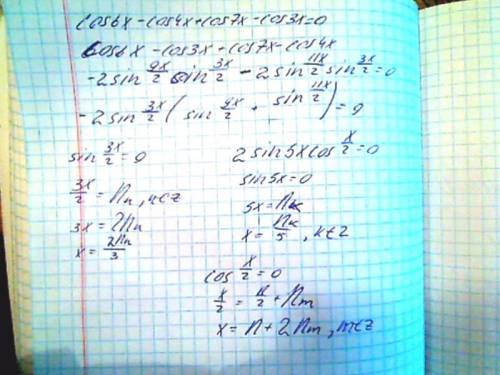 cos6x - cos4x + cos7x - cos3x = 0
cos6x - cos3x + cos7x - cos4x
-2 sin 9x/2 sin 3x/2 - 2 sin 11x/2 sin 3x/2 = 0
-2 sin 3x/2 ( sin 9x/2 + sin 11x/2 ) = 0
sin 3x/2 = 0
3x/2 = πn, n∈z
3x = 2πn
x = 2πn/3
2 sin5x cos x/2 = 0
sin5x = 0
5x = πk
x = πk/5, k∈z
cos x/2 = 0
x/2 = π/2 + πm
x = π + 2πm, m∈z